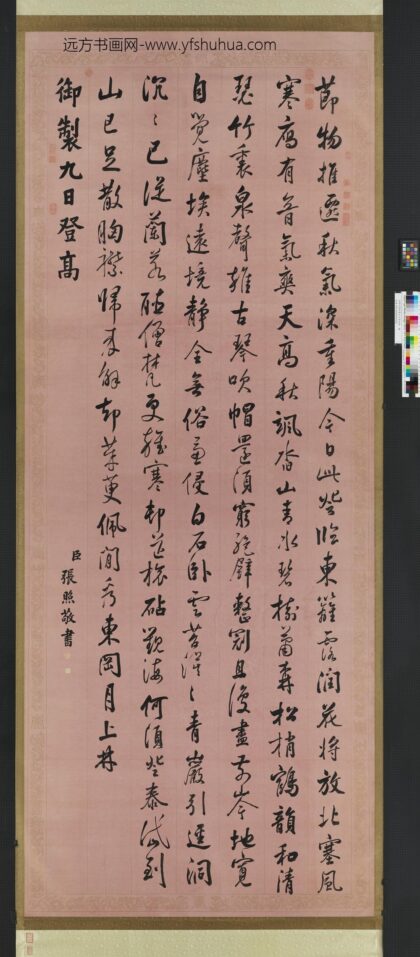 远方书画网-www.yfshuhua.com
節物推遷秋氣深重陽今日此登臨東籬露潤花将放北塞風
寒雁有音氣爽天高秋颯沓山青水碧樹蕭森松梢鶴韻和清
瑟竹裏泉聲雜古琴吹帽還須窮絶壁整冠且復盡前岑地寛
自覺塵埃遠境靜全無俗慮侵白石卧雲苔漠〻青巖引逕洞
沉〻已從蘭若僧梵更雜寒邨旅砧觀海何須登泰岱到
山已足散胸襟歸來解却茱萸佩閒看東岡月上林
御製九日登髙
臣張照敬書